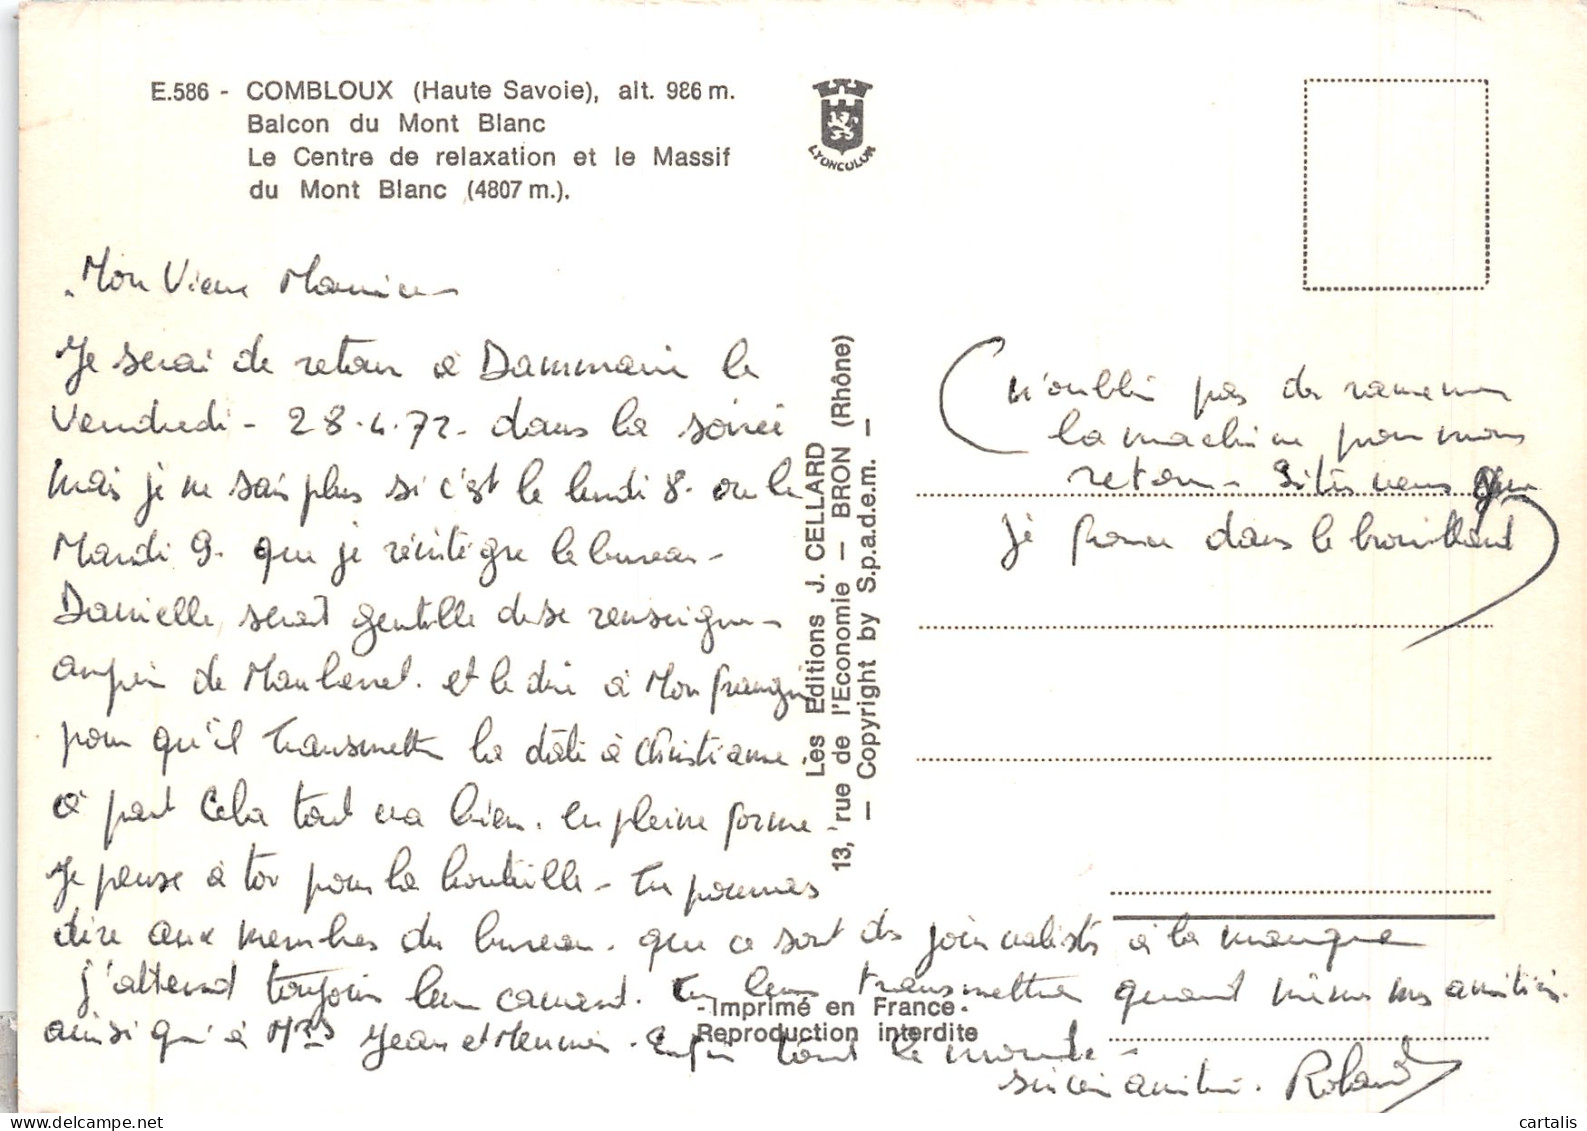 E.586 - COMBLOUX (Haute Savoie), alt. 986 m.
Balcon du Mont Blanc
Le Centre de relaxation et le Massif
du Mont Blanc (4807 m.).
LYONCOLOR
Mon Vieux Maurice
Je serai de retour à Dammarie le
Vendredi - 28.4.72 - dans la soirée
mais je ne sais plus si c'est le lundi 8. ou le
Mardi 9. que je réintègre le bureau -
Danielle, serait gentille de se renseigner
auprès de . et le dire à Mon
pour qu'il transmette la date à Christiane
à part cela tout va bien. en pleine forme -
Je pense à toi pour la bouteille - Tu pourras
dire aux membres du bureau. que ce sont des journalistes à la manque
j'attend toujours leur canard. Tu leur transmettra quand même mes amitiés.
ainsi qu'à Mrs Jean et Meunier. Enfin tout le monde -
amitié. Roland
Les Editions J. CELLARD
13, rue de l'Economie — BRON (Rhône)
— Copyright by S.p.a.d.e.m. —
(n'oublie pas de ramener
la machine pour mon
retour - Si tu veux que
je fonce dans le brouillard)
-Imprimé en France-
Reproduction interdite
© cartalis